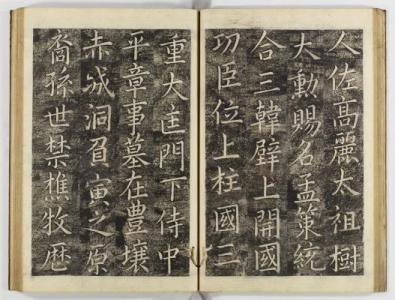 人佐高麗太祖樹
大勳賜名孟策統
合三韓壁上開國
功臣位上柱國三
重大匡門下侍中
平章事墓在豊壤
赤城洞負寅之原
裔孫世禁樵牧歷